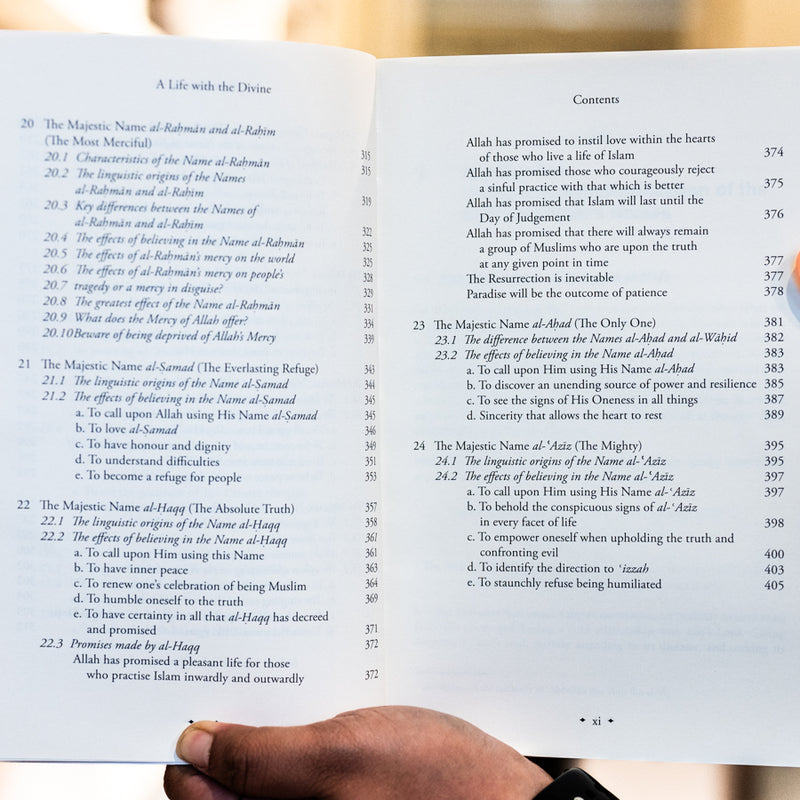 A Life with the Divine
20 The Majestic Name al-Raḥmān and al-Raḥīm
(The Most Merciful) 315
20.1 Characteristics of the Name al-Raḥmān 315
20.2 The linguistic origins of the Names
al-Raḥmān and al-Raḥīm 319
20.3 Key differences between the Names of
al-Raḥmān and al-Raḥīm 322
20.4 The effects of believing in the Name al-Raḥmān 325
20.5 The effects of al-Raḥmān's mercy on the world 325
20.6 The effects of al-Raḥmān's mercy on people's 328
20.7 tragedy or a mercy in disguise? 329
20.8 The greatest effect of the Name al-Raḥmān 331
20.9 What does the Mercy of Allah offer? 334
20.10Beware of being deprived of Allah's Mercy 339
21 The Majestic Name al-Ṣamad (The Everlasting Refuge) 343
21.1 The linguistic origins of the Name al-Ṣamad 344
21.2 The effects of believing in the Name al-Ṣamad 345
a. To call upon Allah using His Name al-Ṣamad 345
b. To love al-Ṣamad 346
c. To have honour and dignity 349
d. To understand difficulties 351
e. To become a refuge for people 353
22 The Majestic Name al-Ḥaqq (The Absolute Truth) 357
22.1 The linguistic origins of the Name al-Ḥaqq 358
22.2 The effects of believing in the Name al-Ḥaqq 361
a. To call upon Him using this Name 361
b. To have inner peace 363
c. To renew one's celebration of being Muslim 364
d. To humble oneself to the truth 369
e. To have certainty in all that al-Ḥaqq has decreed
and promised 371
22.3 Promises made by al-Haqq 372
Allah has promised a pleasant life for those
who practise Islam inwardly and outwardly 372
Contents
Allah has promised to instil love within the hearts
of those who live a life of Islam 374
Allah has promised those who courageously reject
a sinful practice with that which is better 375
Allah has promised that Islam will last until the
Day of Judgement 376
Allah has promised that there will always remain
a group of Muslims who are upon the truth
at any given point in time 377
The Resurrection is inevitable 377
Paradise will be the outcome of patience 378
23 The Majestic Name al-Aḥad (The Only One) 381
23.1 The difference between the Names al-Aḥad and al-Wāḥid 382
23.2 The effects of believing in the Name al-Aḥad 383
a. To call upon Him using His Name al-Aḥad 383
b. To discover an unending source of power and resilience 385
c. To see the signs of His Oneness in all things 387
d. Sincerity that allows the heart to rest 389
24 The Majestic Name al-ʿAzīz (The Mighty) 395
24.1 The linguistic origins of the Name al-ʿAzīz 395
24.2 The effects of believing in the Name al-ʿAzīz 397
a. To call upon Him using His Name al-ʿAzīz 397
b. To behold the conspicuous signs of al-ʿAzīz
in every facet of life 398
c. To empower oneself when upholding the truth and
confronting evil 400
d. To identify the direction to ʿizzah 403
e. To staunchly refuse being humiliated 405
✦ xi ✦